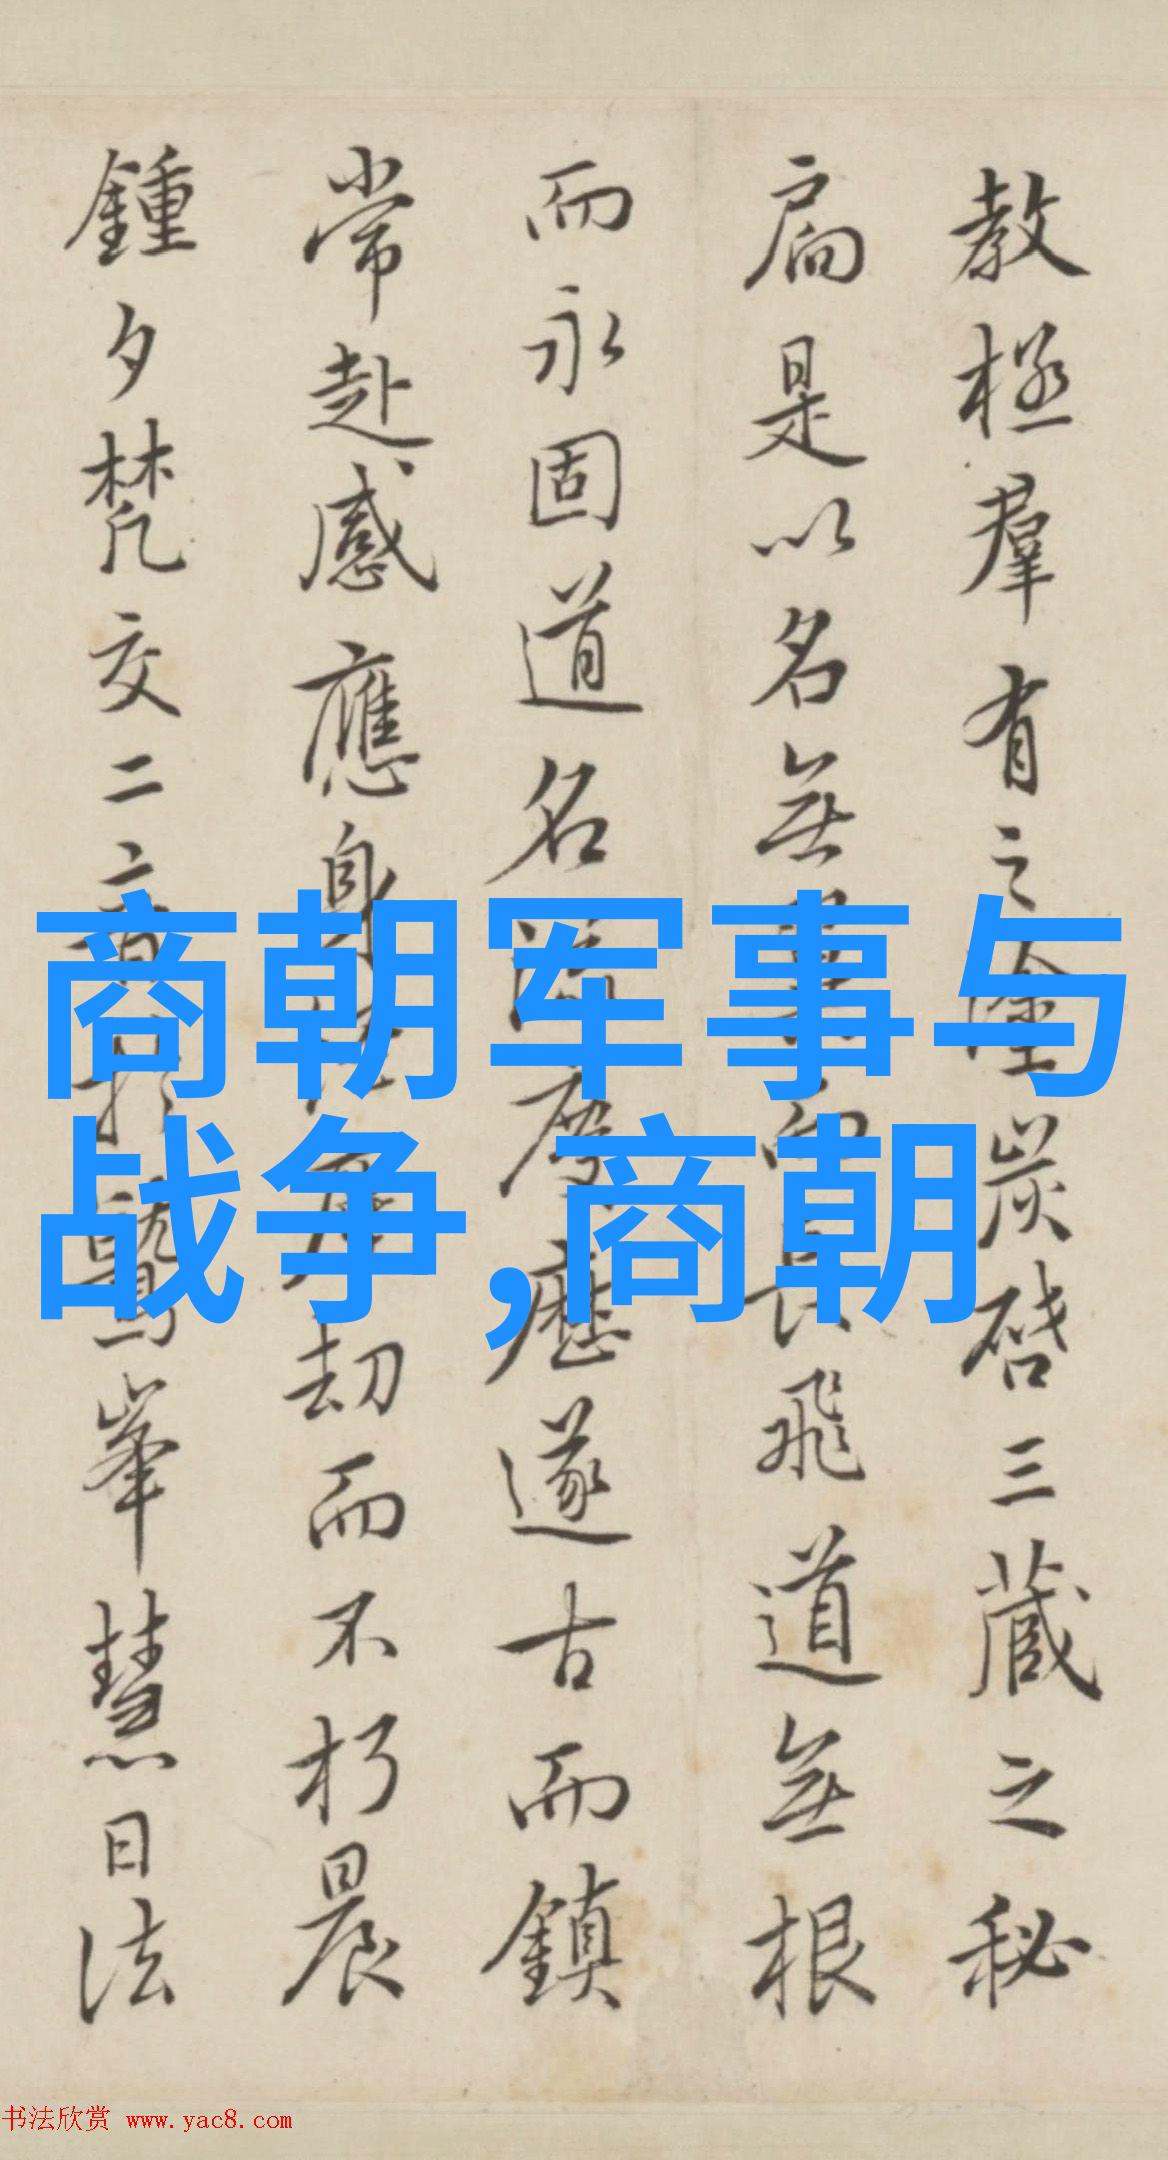 教極羣有之塗炭啓三藏之秘
扃是以名無翼而長飛道無根
而永固道名流慶歷遂古而鎮
常赴感應身經塵劫而不朽晨
鍾夕梵交二音於鷲峯慧日法
商朝军事与
战争,商朝
书法欣赏 www.yac8.com